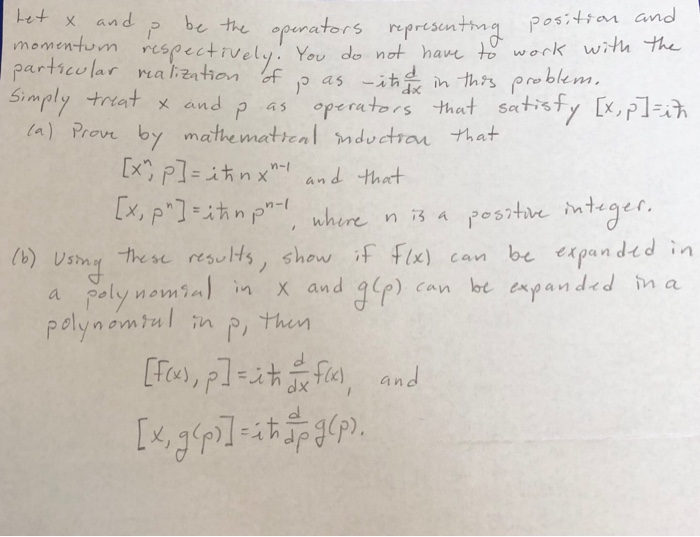 Let x and p be the operators representing position and
momentum respectively. You do not have to work with the
particular realization of p as -iħ d/dx in this problem.
Simply treat x and p as operators that satisfy [x,p]=iħ
(a) Prove by mathematical induction that
[xⁿ, p]=iħnxⁿ⁻¹ and that
[x, pⁿ]=iħnpⁿ⁻¹, where n is a positive integer.
(b) Using these results, show if f(x) can be expanded in
a polynomial in x and g(p) can be expanded in a
polynomial in p, then
[f(x), p]=iħ d/dx f(x), and
[x, g(p)]=iħ d/dp g(p).